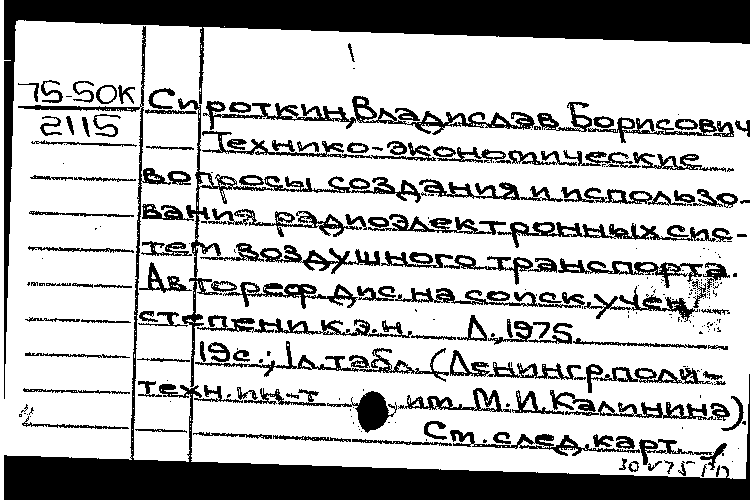 75-50К
2115
Сироткин, Владислав Борисович
Технико-экономические
вопросы создания и использо-
вания радиоэлектронных сис-
тем воздушного транспорта.
Автореф. дис. на соиск. учен.
степени к.э.н. Л., 1975.
19с.; 1л. табл. (Ленингр. поли-
техн. ин-т им. М.И. Калинина).
Ст. след. карт.
30 V 75